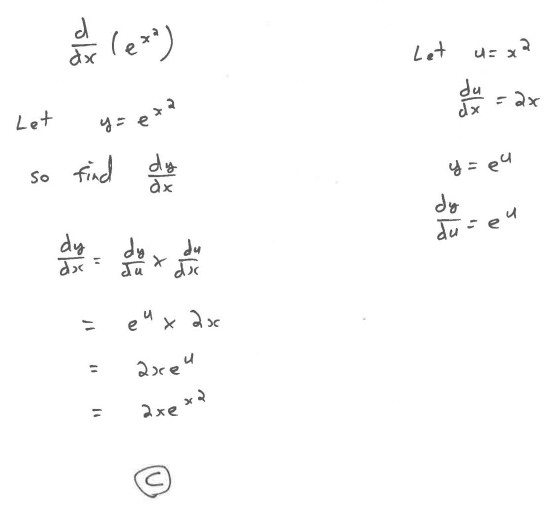 d/dx (e^x²)
Let y = e^x²
so find dy/dx
dy/dx = dy/du × du/dx
= e^u × 2x
= 2xe^u
= 2xe^x²
C
Let u = x²
du/dx = 2x
y = e^u
dy/du = e^u